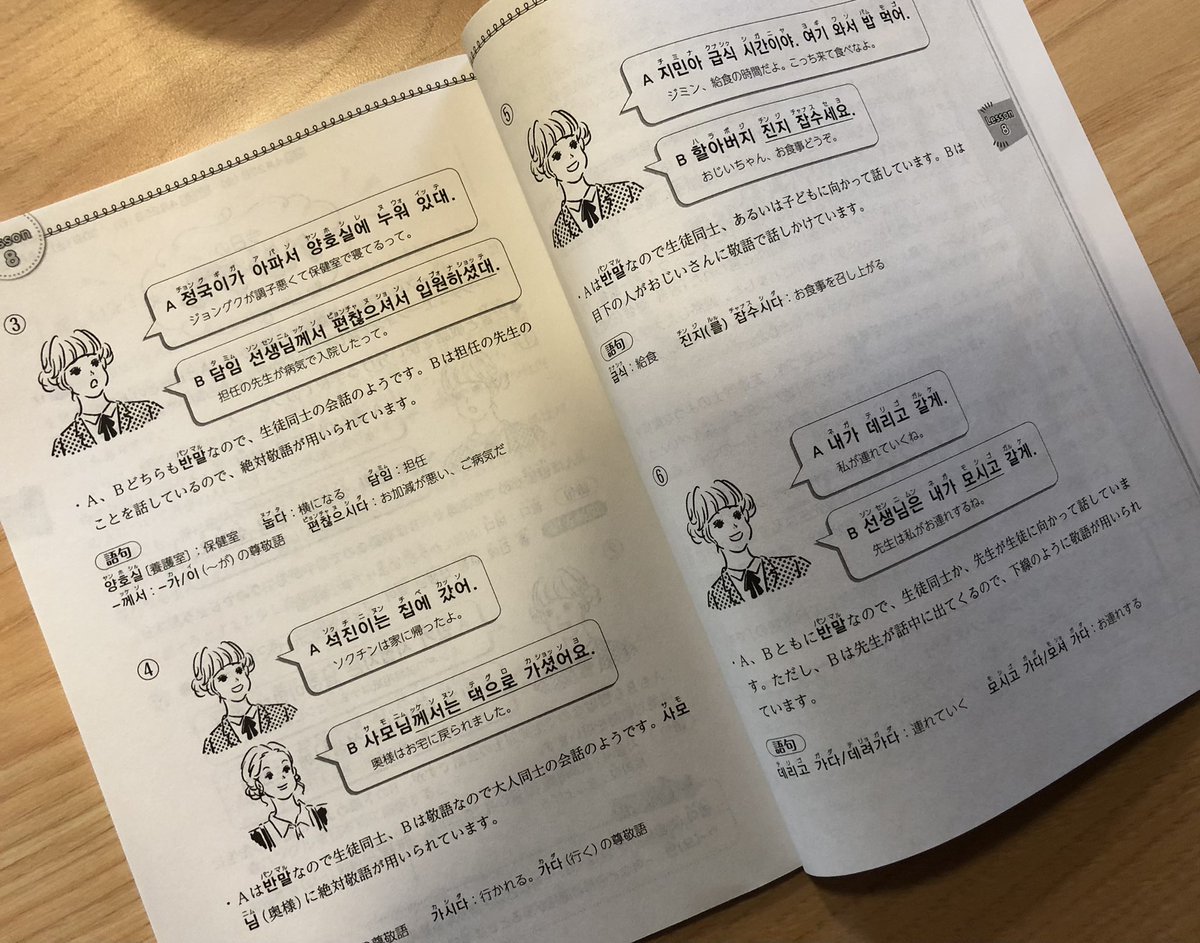 Lesson
8
③
A 정국이가 아파서 양호실에 누워 있대.
ジョングクが調子悪くて保健室で寝てるって。
B 담임 선생님께서 편찮으셔서 입원하셨대.
担任の先生が病気で入院したって。
・A、Bどちらも반말なので、生徒同士の会話のようです。Bは担任の先生の
ことを話しているので、絶対敬語が用いられています。
語句
양호실 [養護室]：保健室 눕다：横になる 담임：担任
-께서：-가/이 (〜が) の尊敬語 편찮으시다：お加減が悪い、ご病気だ
④
A 석진이는 집에 갔어.
ソクチンは家に帰ったよ。
B 사모님께서는 댁으로 가셨어요.
奥様はお宅に戻られました。
・Aは반말なので生徒同士、Bは敬語なので大人同士の会話のようです。사모
님 (奥様) に絶対敬語が用いられています。
の尊敬語 가시다：行かれる。가다 (行く) の尊敬語
⑤
A 지민아 급식 시간이야. 여기 와서 밥 먹어.
ジミン、給食の時間だよ。こっち来て食べなよ。
B 할아버지 진지 잡수세요.
おじいちゃん、お食事どうぞ。
Lesson
8
・Aは반말なので生徒同士、あるいは子どもに向かって話しています。Bは
目下の人がおじいさんに敬語で話しかけています。
語句
급식：給食 진지(를) 잡수시다：お食事を召し上がる
⑥
A 내가 데리고 갈게.
私が連れていくね。
B 선생님은 내가 모시고 갈게.
先生は私がお連れするね。
・A、Bともに반말なので、生徒同士か、先生が生徒に向かって話していま
す。ただし、Bは先生が話中に出てくるので、下線のように敬語が用いられ
ています。
語句
데리고 가다/데려가다：連れていく 모시고 가다/모셔 가다：お連れする